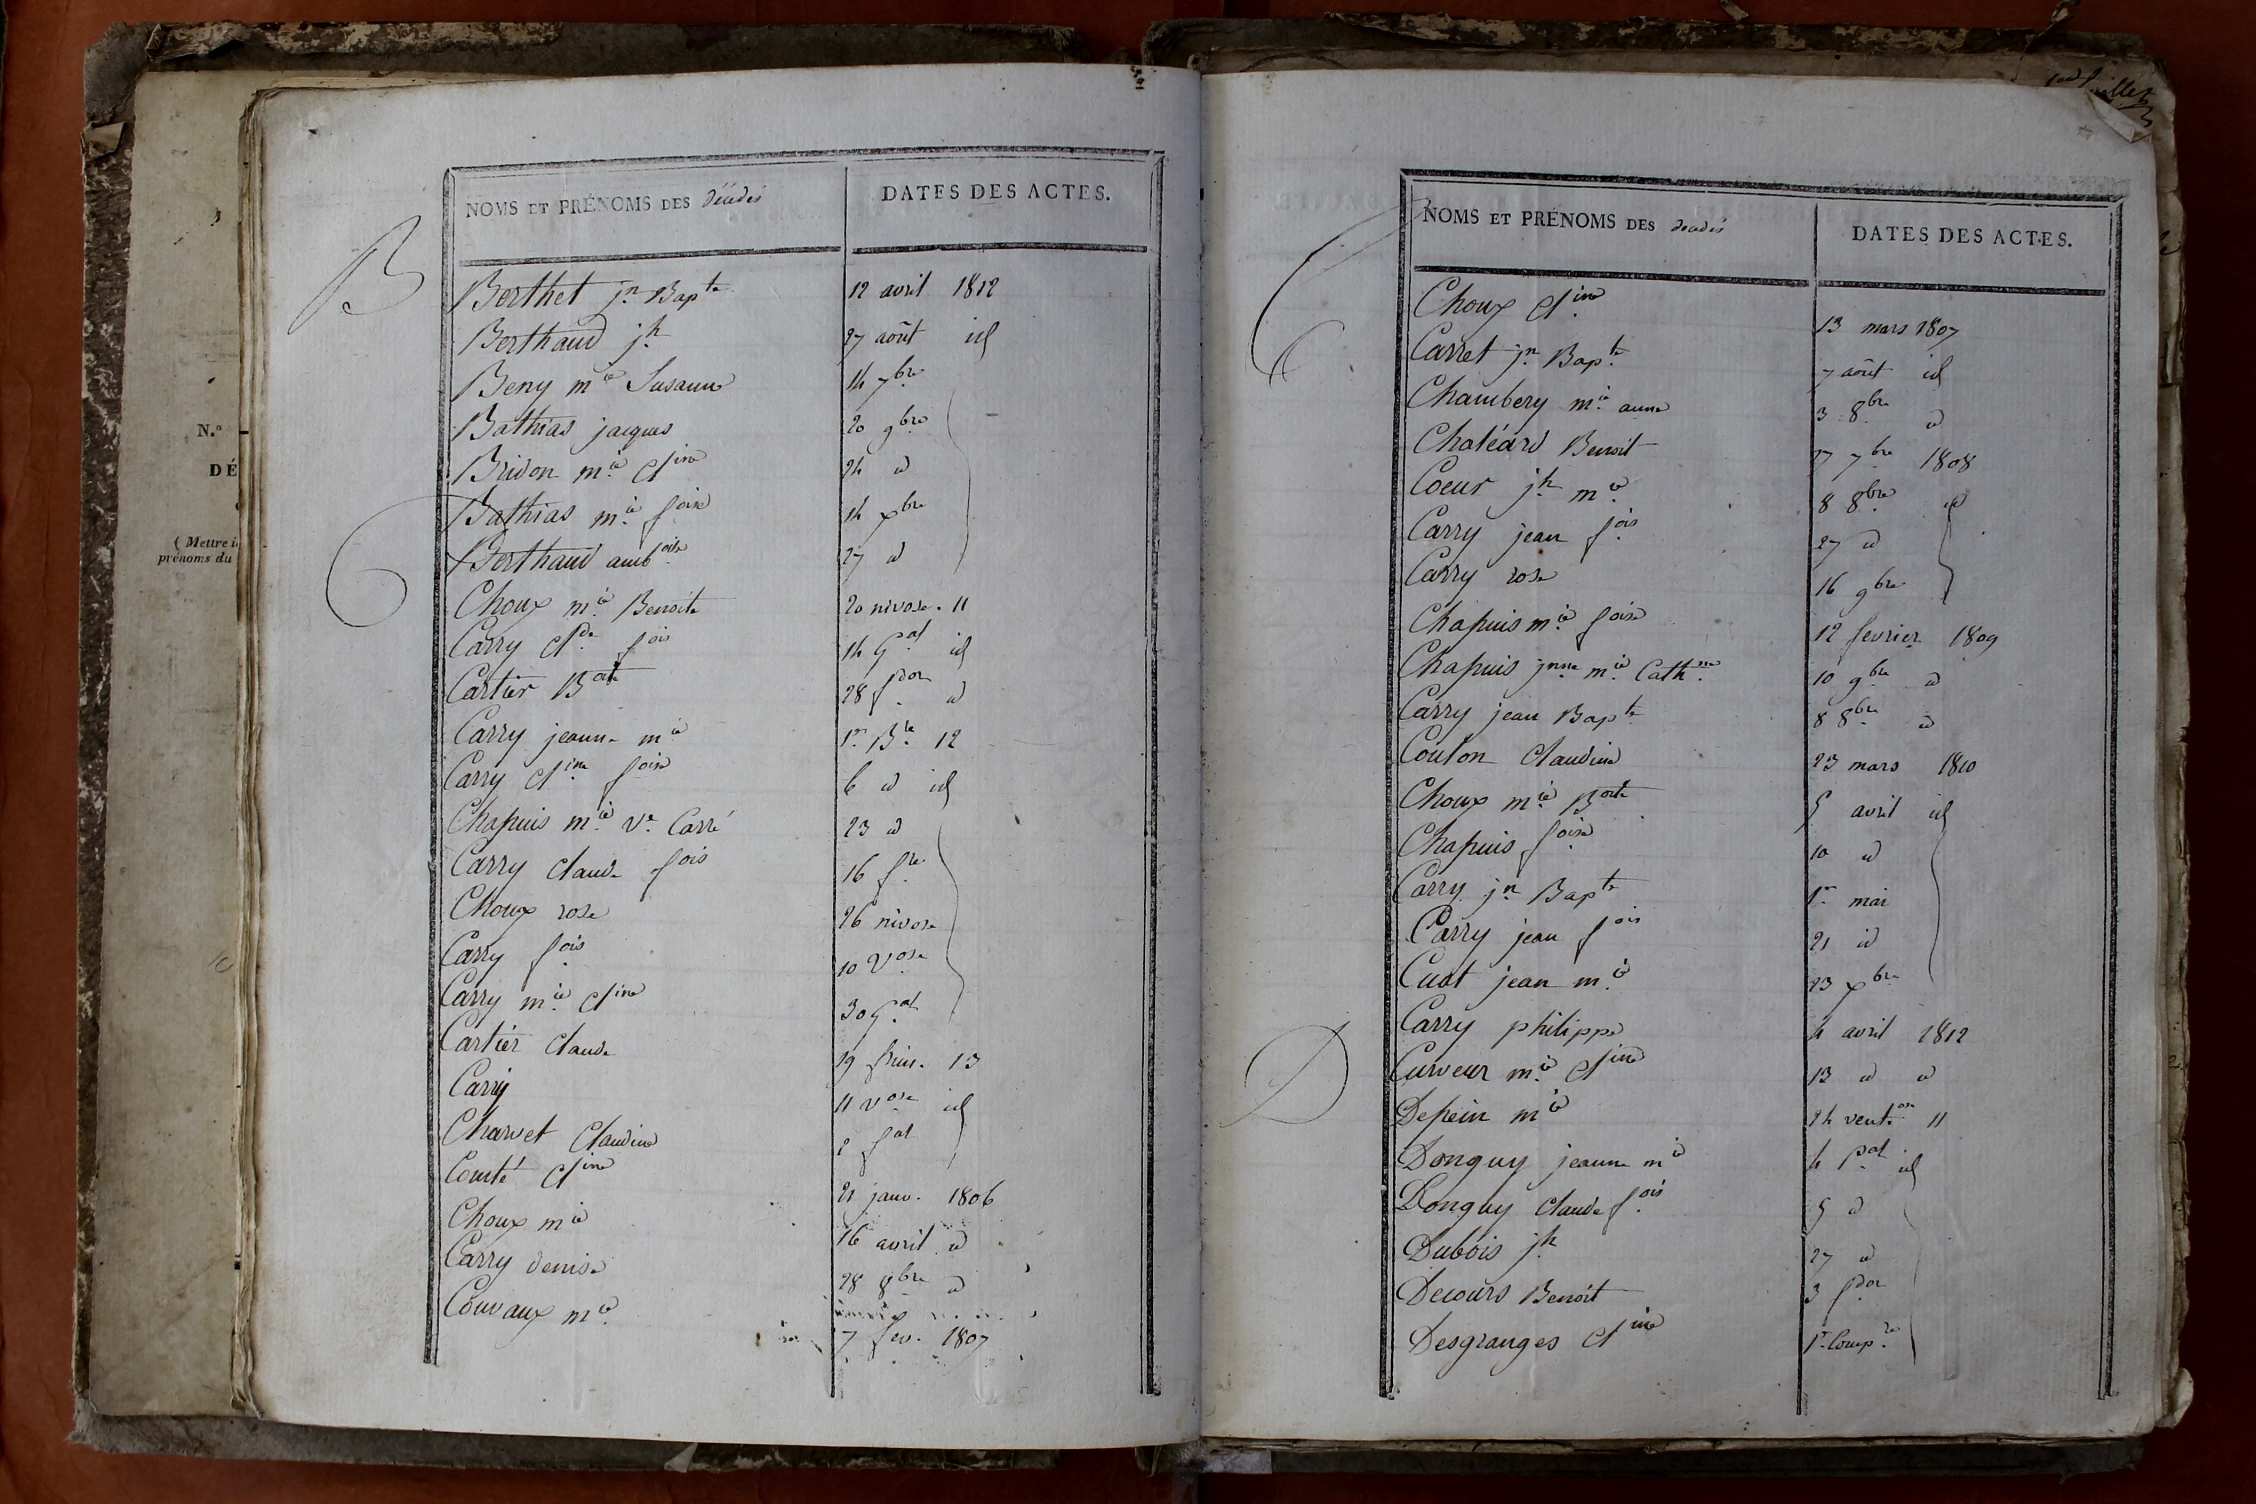 N.°
DÉ
( Mettre i
prénoms du
B
NOMS ET PRÉNOMS DES décédés
DATES DES ACTES.
Berthet jn Bapte 12 avril 1812
Berthaud jh 27 août id
Beny mie Susanne 14 7bre
Bathias jacques 20 9bre
Bridon mie Cline 24 d
Bathias mie foise 14 xbre
Berthaud amboise 27 d
C
Choux mie Benoite 20 nivose. 11
Carry Clde fois 14 Gal id
Cartier Boite 28 fdor d
Carry jeanne mie 1er Bre 12
Carry Cline foise 6 d id
Chapuis mie ve Carré 23 d
Carry claude fois 16 fre
Choux rose 26 nivose
Carry fois 10 Vose
Carry mie Cline 30 Gal
Cartier Claude 19 frim. 13
Carry 11 vose id
Charvet Claudine 2 fal
Comté Cline 21 janv. 1806
Choux mie 16 avril d
Carry denise 28 8bre d
Couvaux mie 7 fev. 1807
C
NOMS ET PRÉNOMS DES décédés
DATES DES ACTES.
Choux Cline 13 mars 1807
Carret jn Bapte 7 août id
Chambery mie anne 3 8bre d
Chaléard Benoit 17 7bre 1808
Coeur jh mie 8 8bre d
Carry jean fois 27 d
Carry rose 16 9bre
Chapuis mie foise 12 fevrier 1809
Chapuis jnne mie Cathne 10 9bre d
Carry jean Bapte 8 8bre d
Coulon Claudine 23 mars 1810
Choux mie Boite 5 avril id
Chapuis foise 10 d
Carry jn Bapte 1er mai
Carry jean fois 21 id
Cuat jean mie 23 xbre
Carry philippe 4 avril 1812
Curveur mie Cline 13 d d
D
Depein mie 24 ventose 11
Donguy jeanne mie 4 Pal id
Donguy Claude fois 5 d
Dubois jh 27 d
Decours Benoit 3 fdor
Desgranges Cline 1er Compre